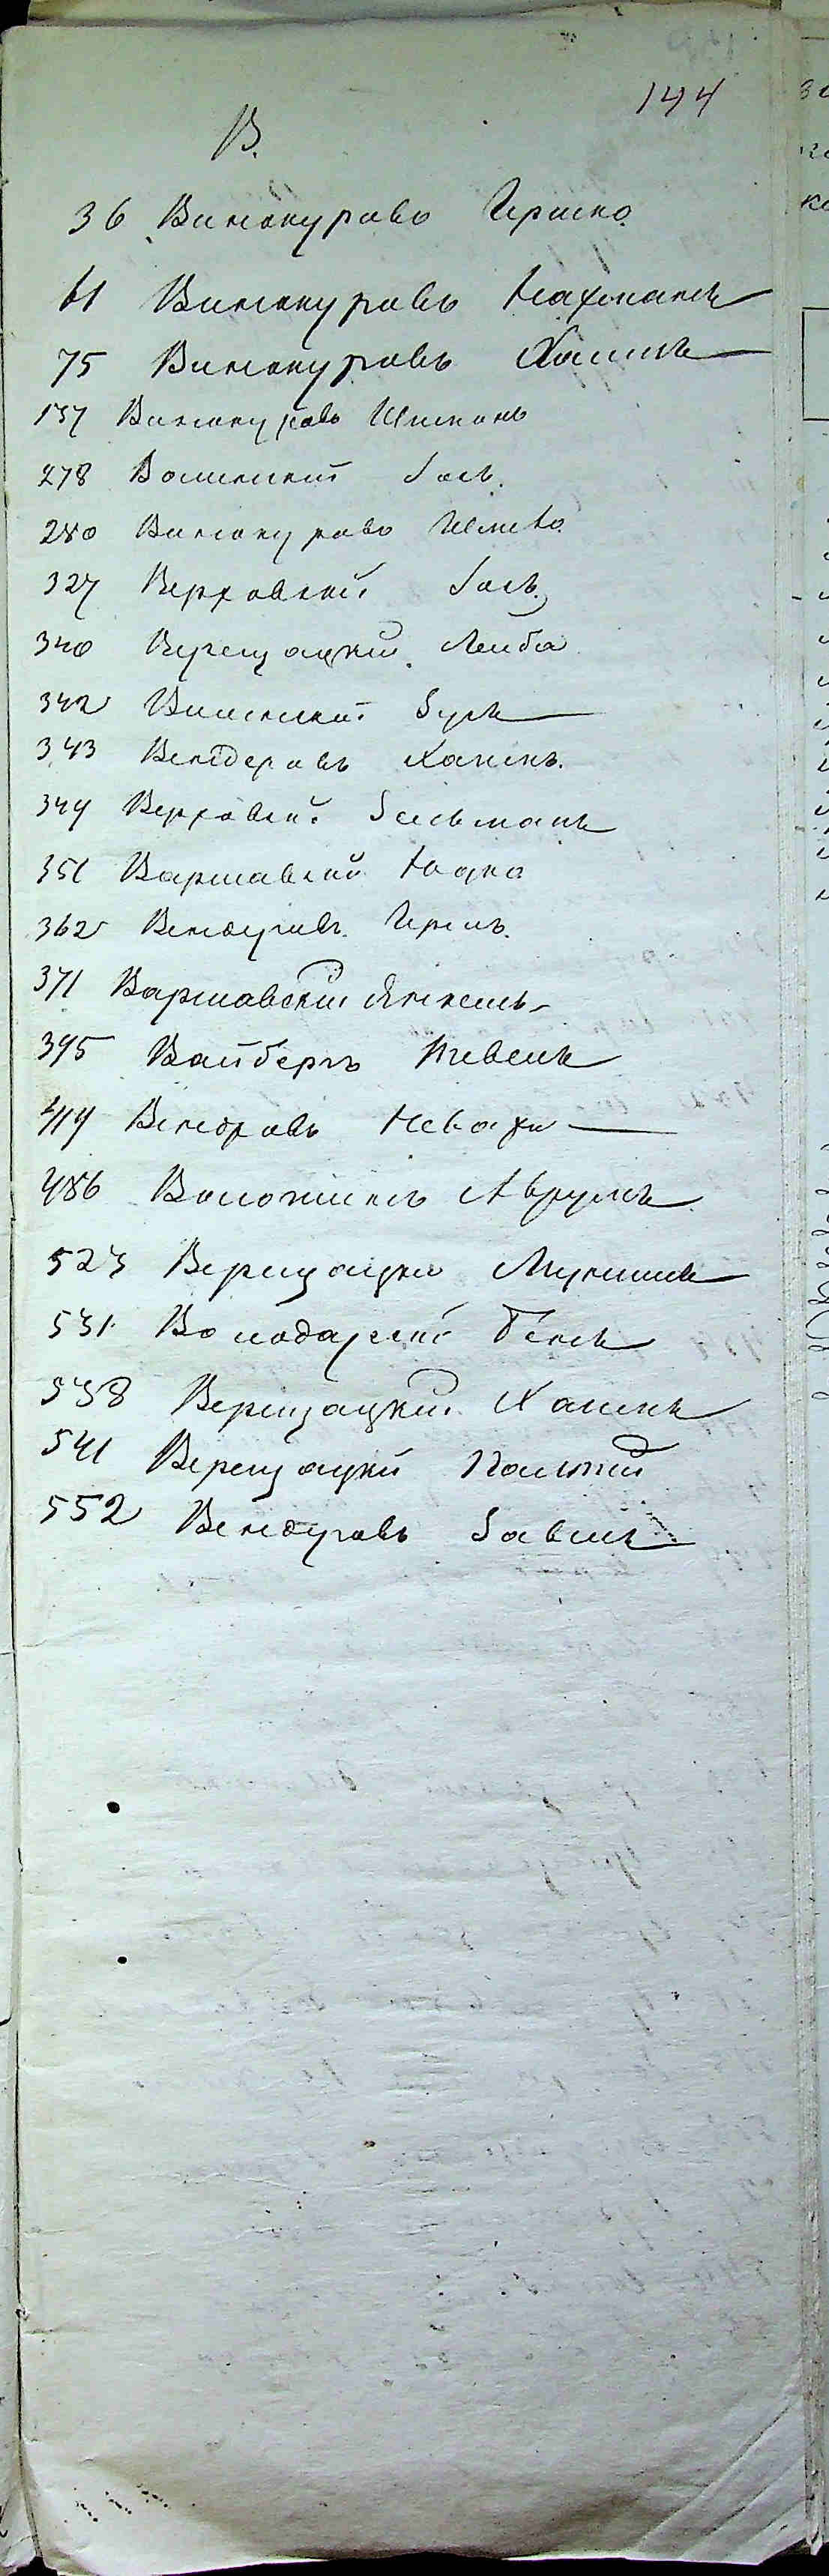 144
В.
36 Винокуровъ Гершко
61 Винокуровъ Нахманъ
75 Винокуровъ Хаимъ
137 Винокуровъ Шимонъ
278 Волинский Iосъ.
280 Винокуровъ
327 Верховский Iось.
340 Верещацкий Лейба
342 Вилинский Зусъ
343 Вендеровъ Хаимъ.
344 Верховский Зельманъ
351 Варшавский Юдка
362 Вендеровъ Гершъ.
371 Варшавский Янкель
395 Вайбергъ Тевель
414 Вендровъ Невахъ
486 Воложинъ Аврумъ
523 Верещацкий
531 Володарский Бень
538 Верещацкий Хаимъ
541 Верещацкий Палтий
552 Вендеровъ Завель